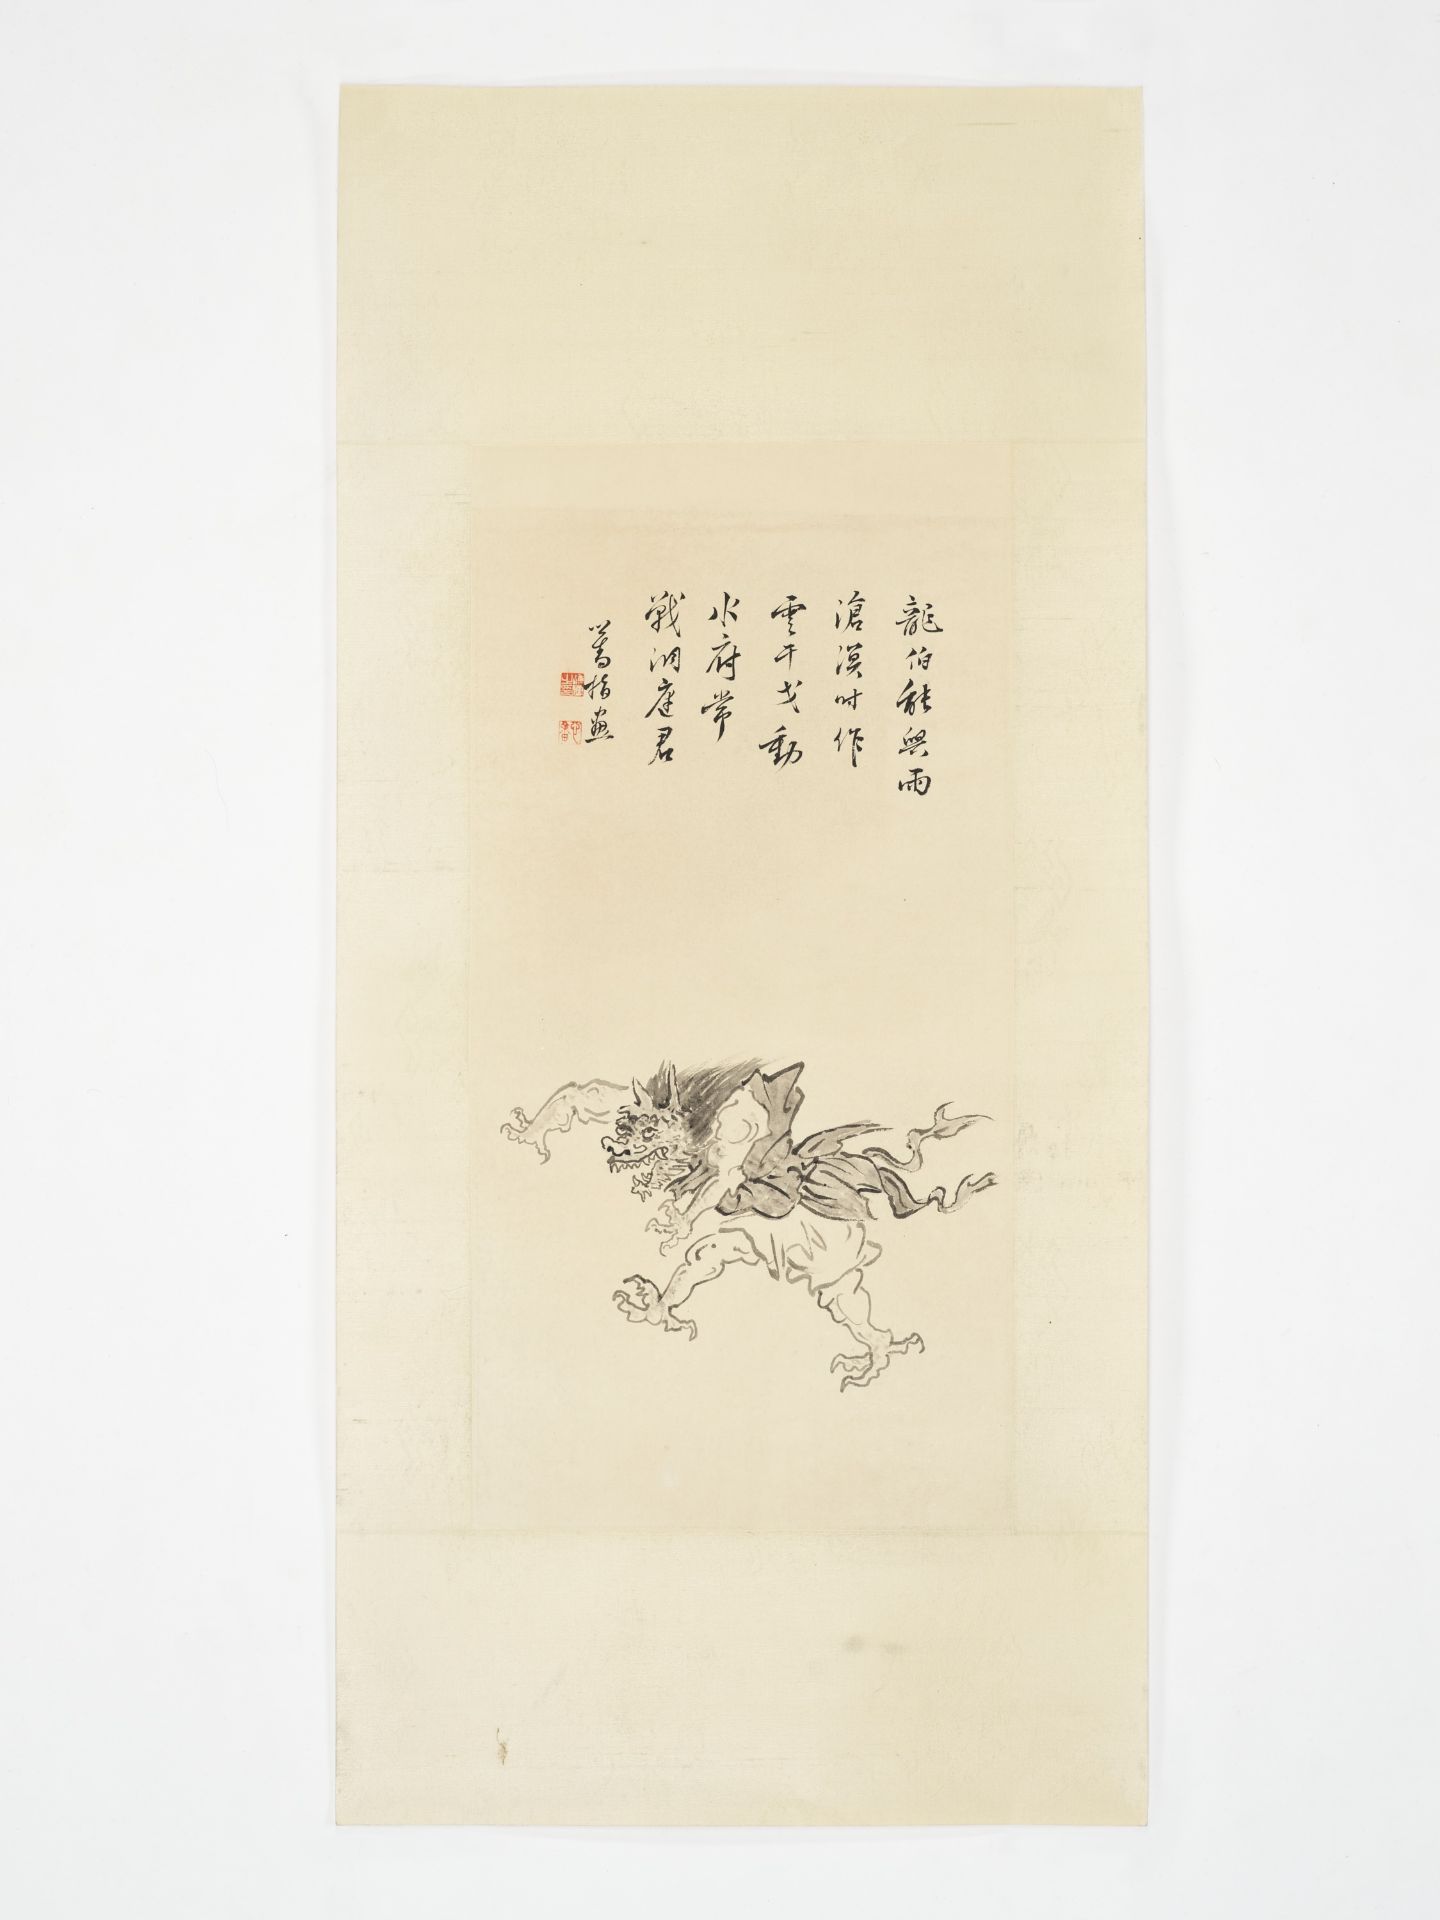 龍伯能興雨
滄溟时作
雲干戈動
水府常
戰洞庭君
溥指畫